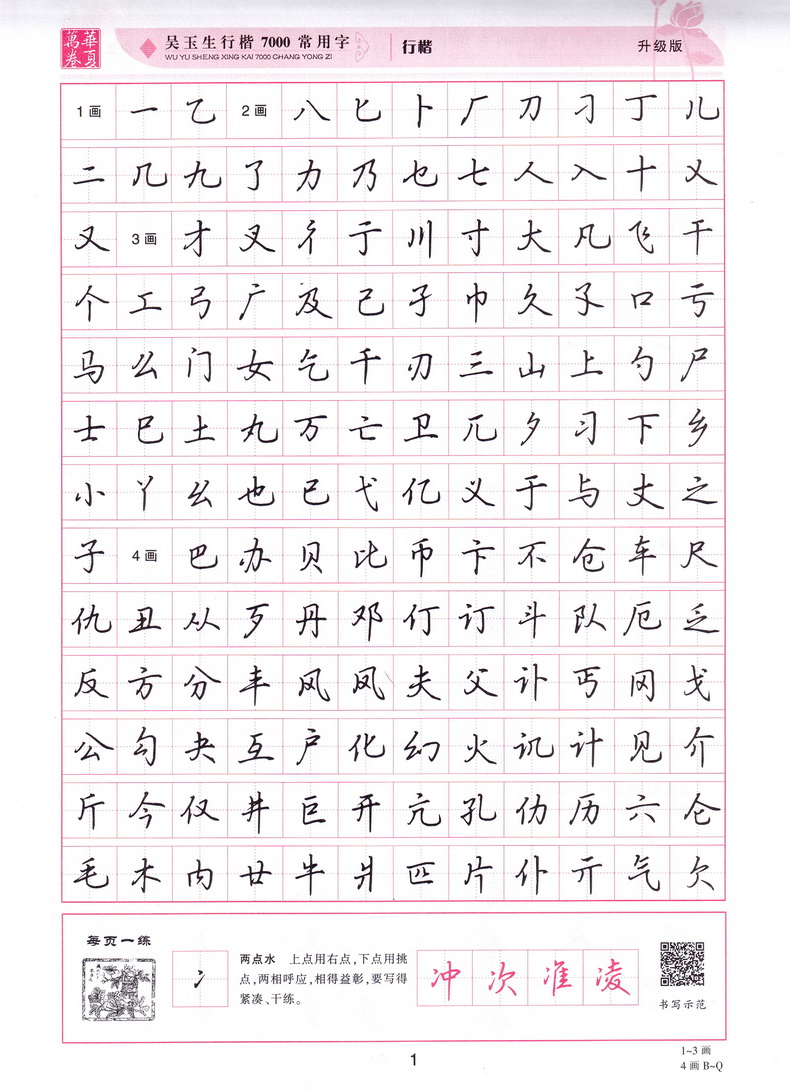 華夏萬卷
吴玉生行楷 7000 常用字
WU YU SHENG XING KAI 7000 CHANG YONG ZI
行楷
升级版
1画 一 乙 2画 八 匕 卜 厂 刀 刁 丁 儿
二 几 九 了 力 乃 乜 七 人 入 十 乂
又 3画 才 叉 彳 亍 川 寸 大 凡 飞 干
个 工 弓 广 及 己 孑 巾 久 孓 口 亏
马 么 门 女 乞 千 刃 三 山 上 勺 尸
士 巳 土 丸 万 亡 卫 兀 夕 习 下 乡
小 丫 幺 也 已 弋 亿 义 于 与 丈 之
子 4画 巴 办 贝 比 币 卞 不 仓 车 尺
仇 丑 从 歹 丹 邓 仃 订 斗 队 厄 乏
反 方 分 丰 风 凤 夫 父 讣 丐 冈 戈
公 勾 夬 互 户 化 幻 火 讥 计 见 介
斤 今 仅 井 巨 开 亢 孔 仂 历 六 仑
毛 木 内 廿 牛 爿 匹 片 仆 亓 气 欠
每页一练
冫
两点水 上点用右点,下点用挑
点,两相呼应,相得益彰,要写得
紧凑、干练。
冲 次 准 凌
书写示范
1
1~3 画
4 画 B~Q